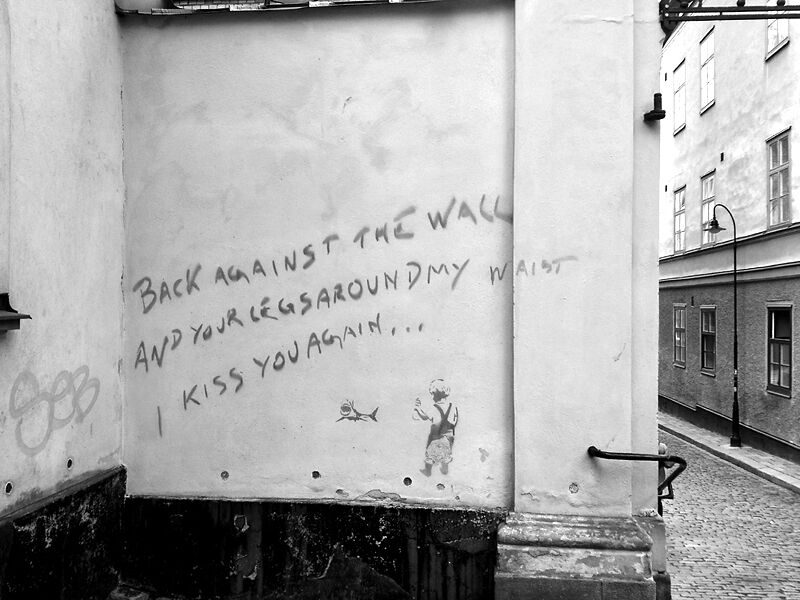 BACK AGAINST THE WALL
AND YOUR LEGS AROUND MY WAIST
I KISS YOU AGAIN...
SEB